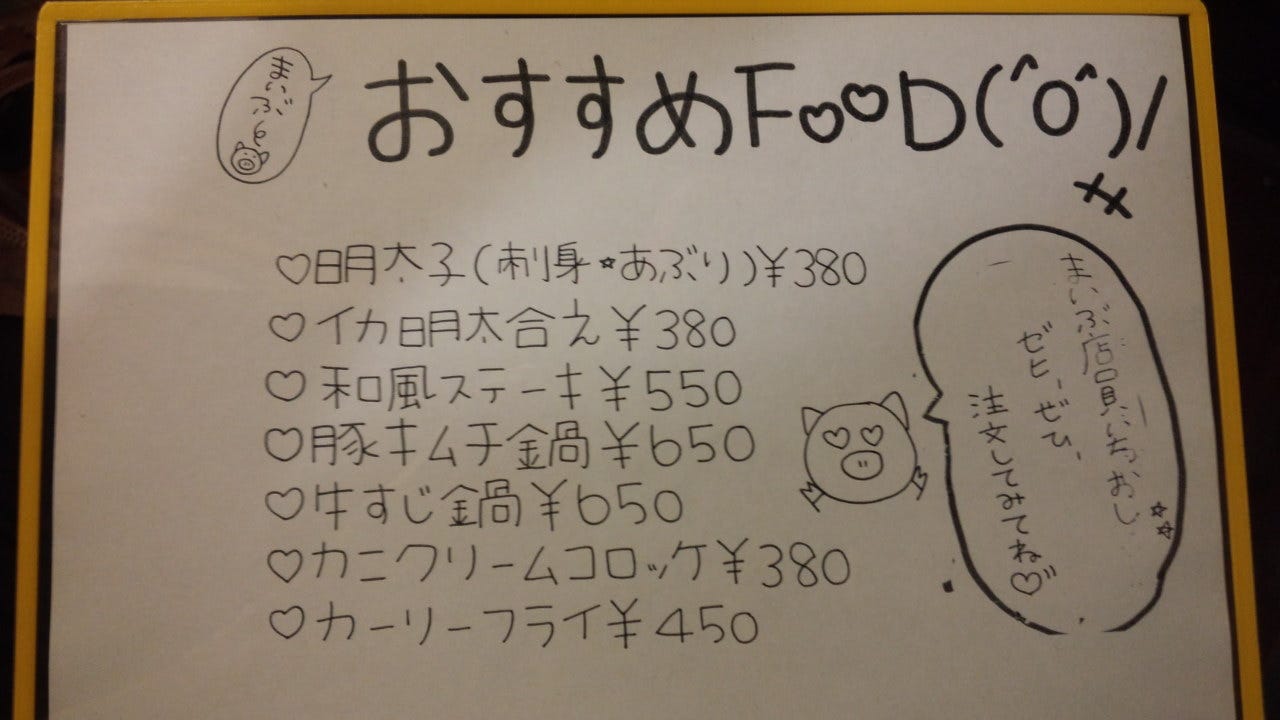 まいぶぅ
おすすめFOOD(^O^)/
♡明太子(刺身☆あぶり)¥380
♡イカ明太合え¥380
♡和風ステーキ¥550
♡豚キムチ鍋¥650
♡牛すじ鍋¥650
♡カニクリームコロッケ¥380
♡カーリーフライ¥450
まいぶ店員いちおし☆☆
ゼヒ、ぜひ、
注文してみてね♡